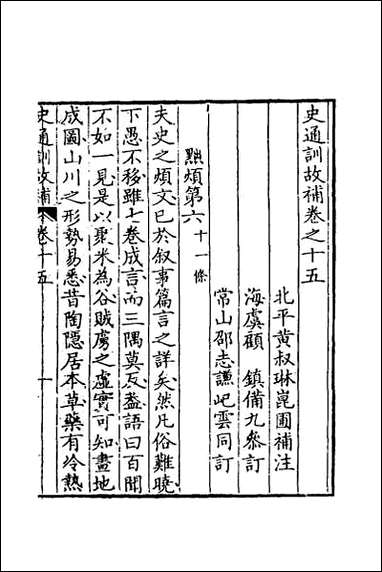 史通訓故補卷之十五
北平黃叔琳崑圃補注
海虞顧　鎮備九叅訂
常山邵志謙屺雲同訂
點煩第六十一條
夫史之煩文已於叙事篇言之詳矣然凡俗難曉
下愚不移雖七卷成言而三隅莫反葢語曰百聞
不如一見是以聚米為谷賊虜之虛實可知畫地
成圖山川之形勢易悉昔陶隱居本草藥有冷熱
史通訓故補　卷十五　一